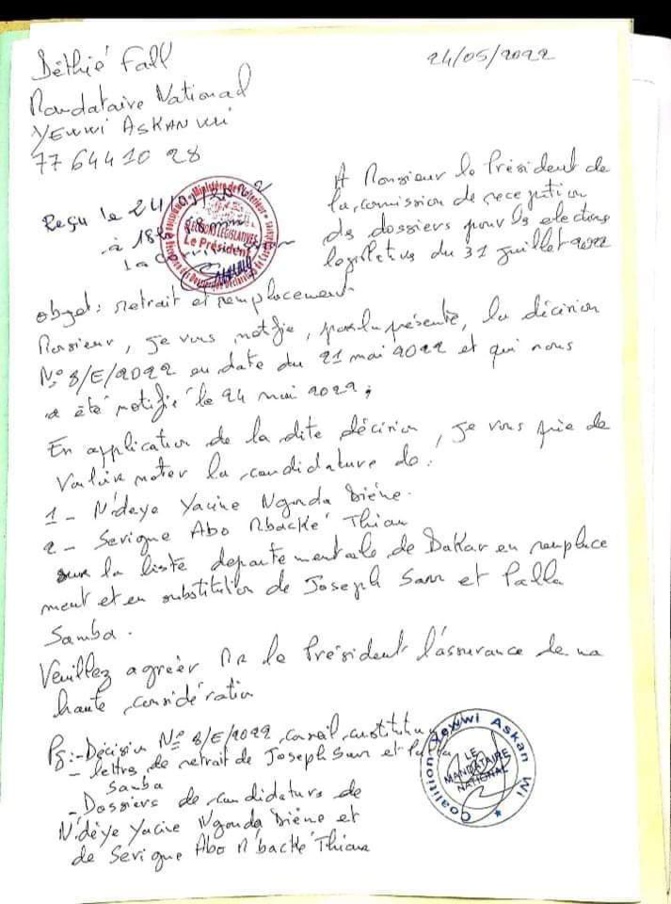 Déthié Fall
24/05/2022
Mandataire National
YEWWI ASKAN WI
77 644 10 28
A Monsieur le Président de
la commission de reception
des dossiers pour les elections
legislatives du 31 juillet 2022
Reçu le 24/05/2022
à 18h
ELECTIONS LEGISLATIVES
Le Président
objet: retrait et remplacement
Monsieur, je vous notifie, par la présente, la décision
N° 8/E/2022 en date du 21 mai 2022 et qui nous
a été notifié le 24 mai 2022;
En application de la dite décision, je vous prie de
Vouloir noter la candidature de:
1 - N'deye Yacine Ngonda Diéne.
2 - Serigne Abo Mbacké Thiam
sur la liste departementale de Dakar en remplace
ment et en substitution de Joseph Sarr et Palla
Samba.
Veuillez agréer Mr le Président l'assurance de ma
haute considération
PS:-Décision N° 8/E/2022 conseil constitutu
- lettres de retrait de Joseph Sarr et Palla
Samba
- Dossiers de candidature de
N'déye Yacine Ngonda Diéne et
de Serigne Abo M'backé Thiam
Coalition Yewwi Askan Wi
LE
MANDATAIRE
NATIONAL